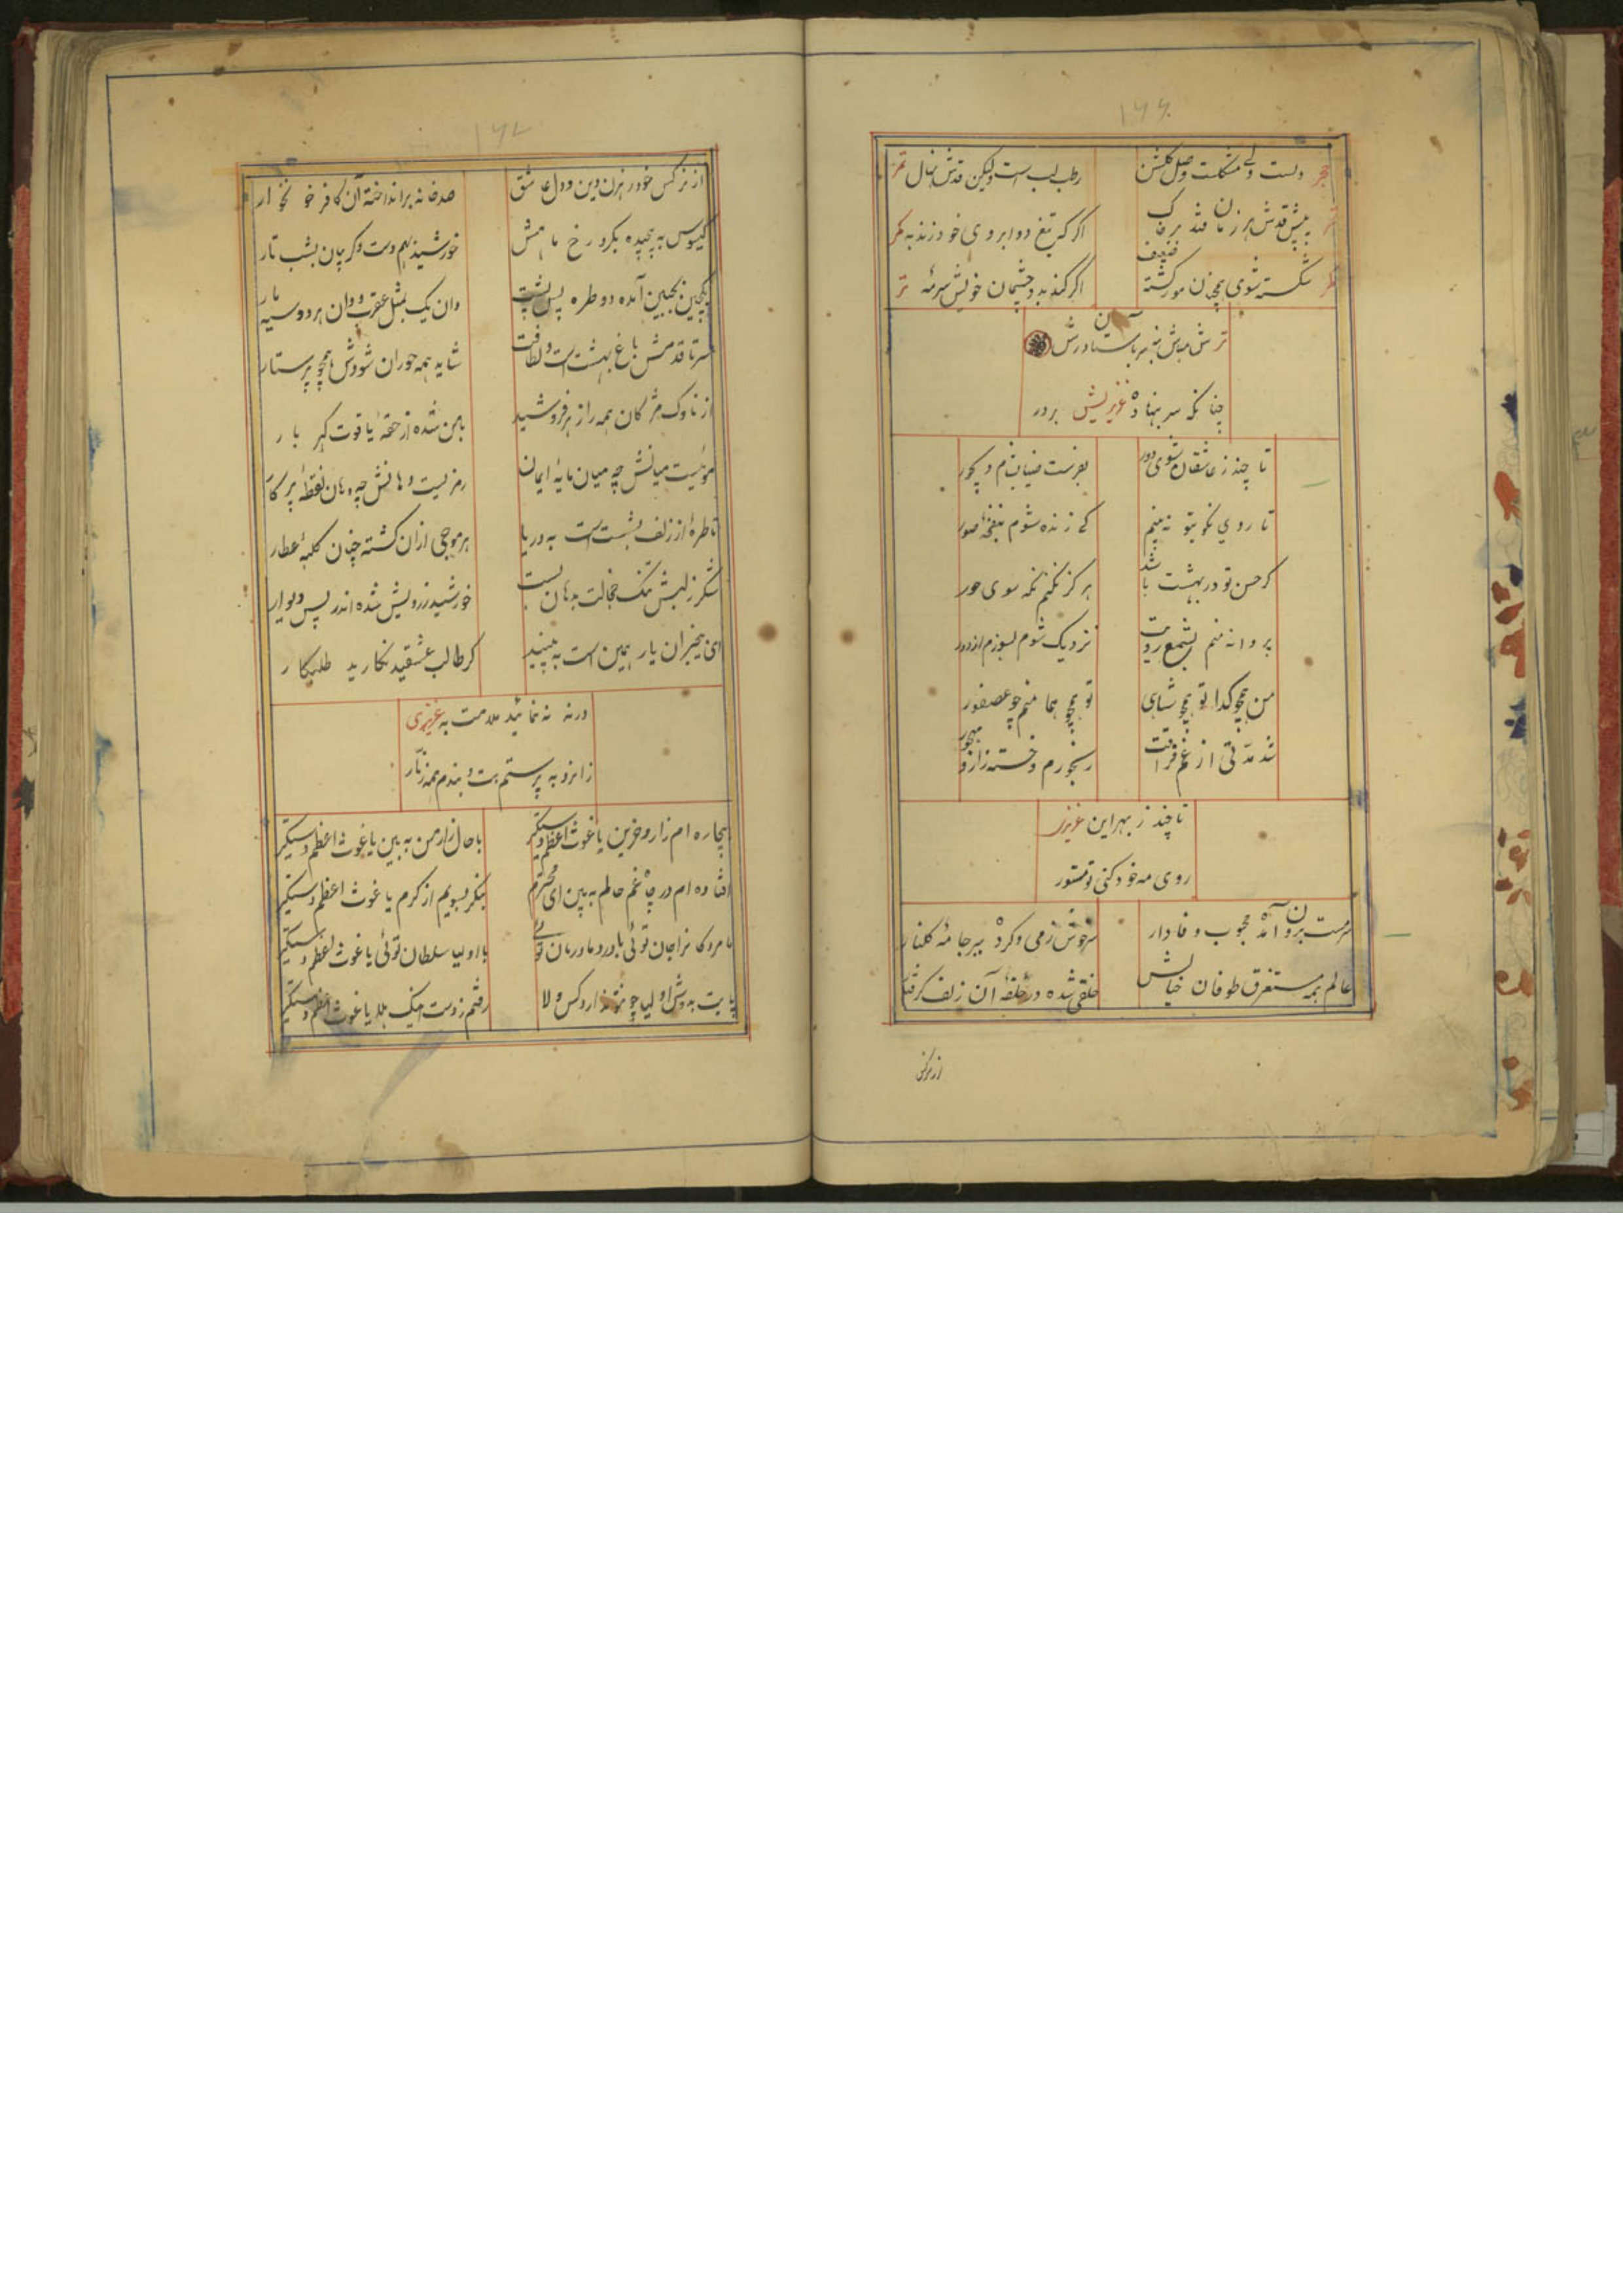 ۱۶۶
دلست ولے مشکلست وصل گلشن رطب لب است ولیکن قدش نهال
به پیش قدش هر زمان فتد اگر که تیغ دو ابروی خود زند به
شکسته شوی همچنان مور کشته ضعیف اگر کند بدو چشمان خویش سرمه
چنانکه سر بنهاده عزیزیش بر در
تا چند ز عاشقان شوی دور
تا روی نکو بتو نه بینم کے زنده شوم بنفخهٔ صور
گر حسن تو در بهشت باشد هرگز نکنم نگه سوی حور
پروانه منم بشمع رویت نزدیک شوم بسوزم از دور
من همچو گدا تو همچو شاهی تو همچو هما منم چو عصفور
شد مدّتی از غم فراقت رنجورم و خسته زار و مهجور
تا چند ز بهر این عزیزی
روی مه خود کنی تو مستور
سرمست برون آمد محبوب وفادار سرخوش ز می و کرده ببر جامهٔ گلنار
عالم همه مستغرق طوفان خیالش خلقی شده در حلقهٔ آن زلف گرفتار
از نرگس
۱۶۷
از نرگس خود رهزن دین و دل عاشق صد خانه برانداخته آن کافر خونخوار
گیسوس به پیچیده بگرد رخ ماهش خورشید بهم دست و گریبان بشب تار
پیچین بجبین آمده دو طره پس پشت وان یک بمثل عقرب و وان هر دو سیه مار
سر تا قدمش باغ بهشت است و لطافت شاید همه حوران شودش همچو پرستار
از ناوک مژگان همه را زهر فروشید بامن شده از حقهٔ یاقوت گهربار
موئیست میانش چه میان مایهٔ ایمان رمزیست دهانش چه دهان نقطهٔ پرکار
تا طرهٔ از زلف بشست است به دریا هر موجی ازان گشته چنان کلبهٔ عطار
شکر ز لبش تنگ خجالت بدهان بست خورشید ز رویش شده اندر پس دیوار
ای بیخبران یار همین است به بینید گر طالب عشقید نگارید طلبکار
ورنه نه نمائید ملامت به عزیزی
زانرو به پرستم بت و بندم همه زنّار
بیچاره ام زار و حزین یا غوث اعظم دستگیر با حال زار من به بین یا غوث اعظم دستگیر
افتاده ام در چاه غم حالم به بین ای محترم بنگر بسویم از کرم یا غوث اعظم دستگیر
با مردگان را جان توئی با درد ما درمان توئی با اولیا سلطان توئی یا غوث اعظم دستگیر
پایت به دوش اولیا چو تو ندارد کس ولا رفتم ز دست اینک بلا یا غوث اعظم دستگیر